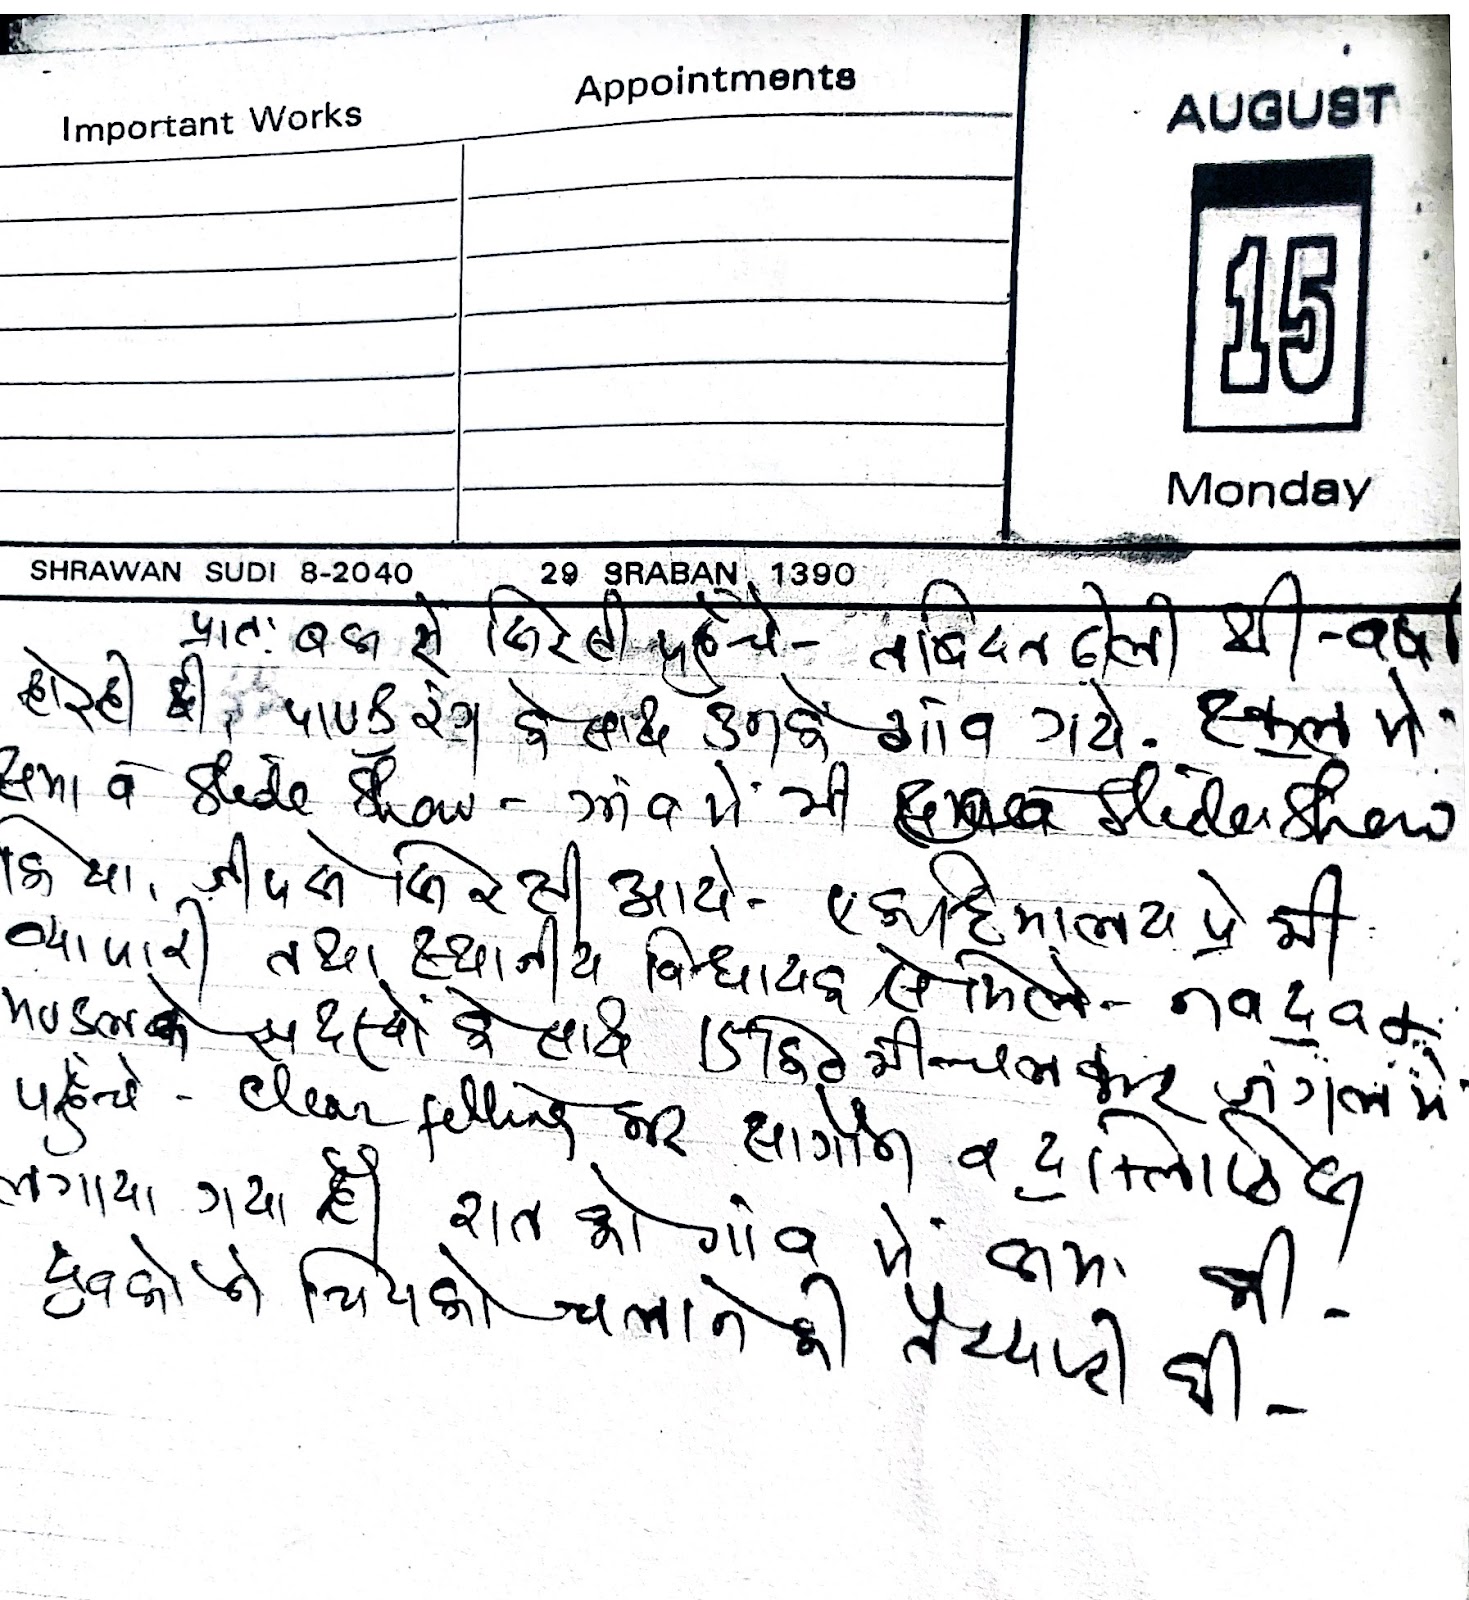 Important Works
Appointments
AUGUST
15
Monday
SHRAWAN SUDI 8-2040 29 SRABAN 1390
प्रातः बस से सिरसी पहुँचे - तबियत ढीली थी - वर्षा
हो रही थी, पाण्डुरंग के साथ उनके गांव गये. स्कूल में
सभा व Slide Show - गांव में भी सभा व Slide Show
किया, सिरसी आये - एक हिमालय प्रेमी
व्यापारी तथा स्थानीय विधायक से मिले - नवयुवक
मण्डल के सदस्यों के साथ 15 कि० मी चलकर जंगल में
पहुँचे - Clear felling कर सागौन व युक्लिप्टिस
लगाया गया है। रात को गांव में सभा की -
युवकों ने चिपको चलाने की तैय्यारी की -